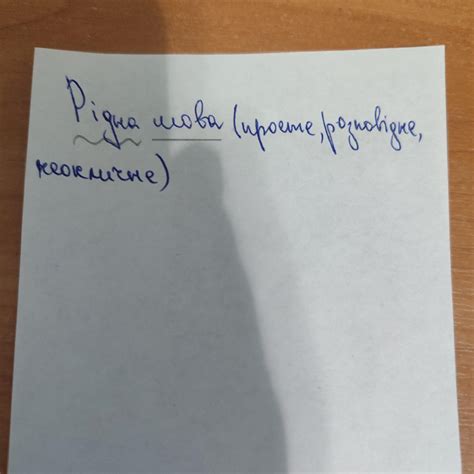 Рідна мова (просте, розповідне,
неоклична)